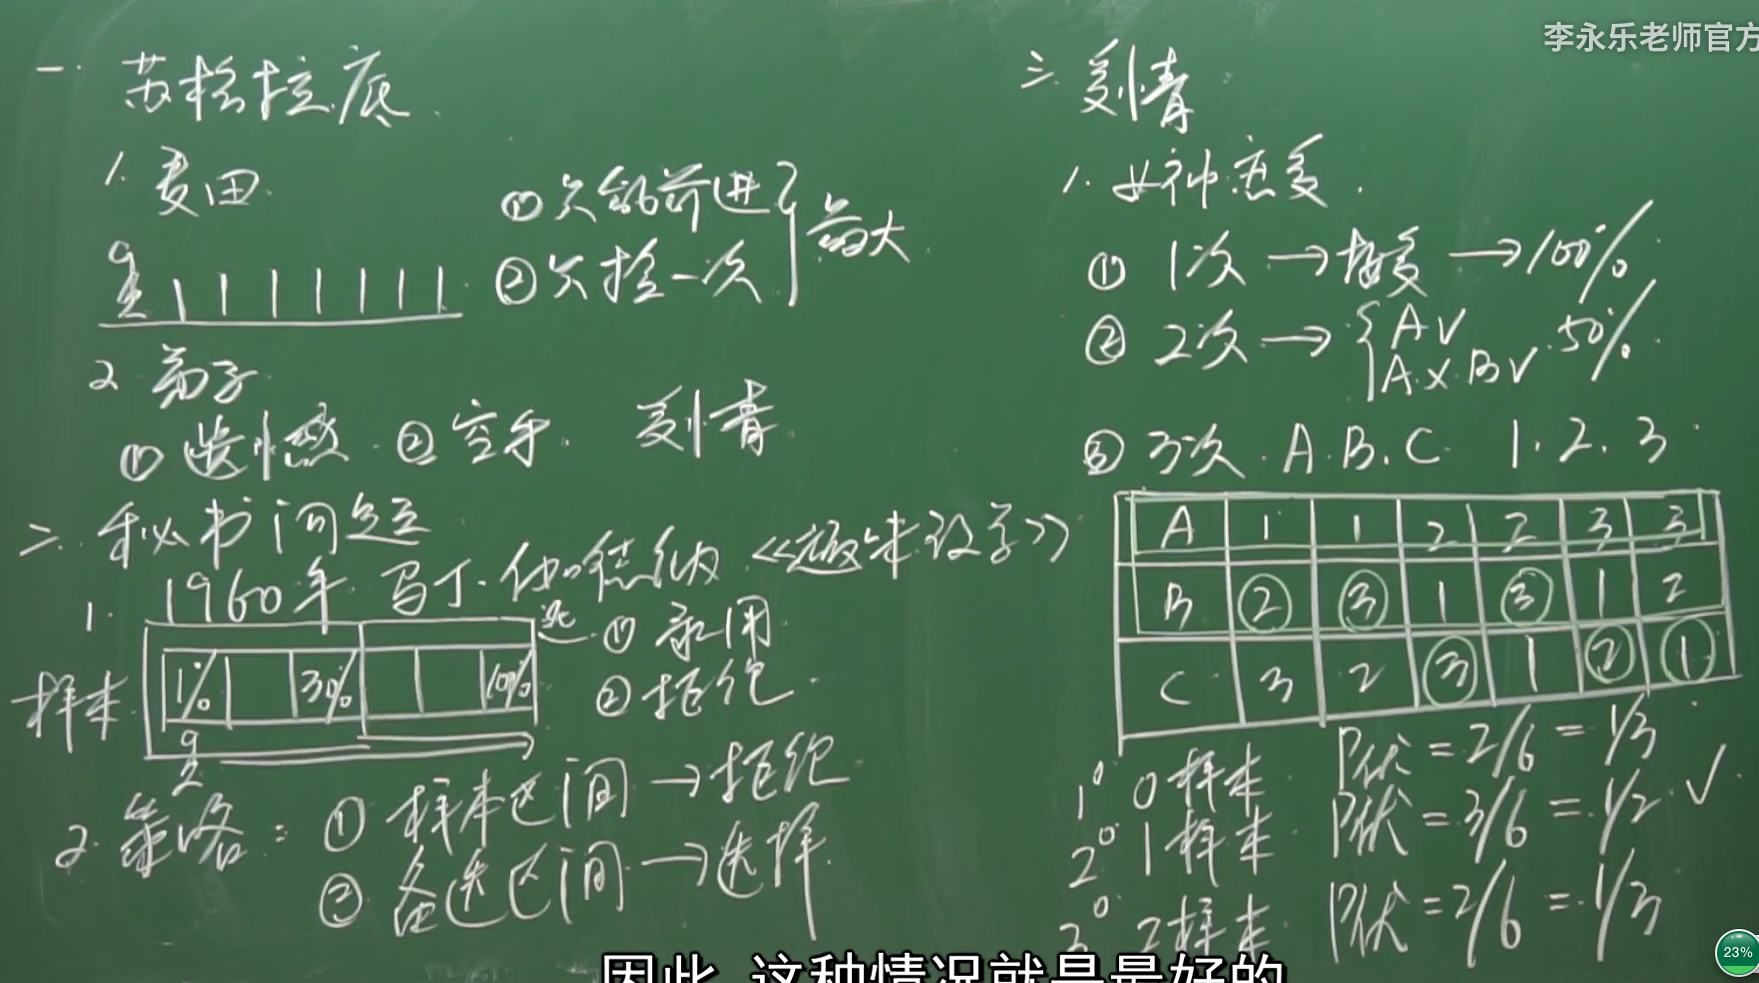 李永乐老师官方
一. 苏格拉底
1. 麦田
① 只能前进
② 只捡一次
最大
2. 弟子
① 遗憾 ② 空手 刘备
二. 秘书问题
1. 1960年 马丁·伽德纳《趣味数学》
样本 1% 30% 100% 选 ① 录用
② 拒绝
2. 策略: ① 样本区间 → 拒绝
② 备选区间 → 选择
三.
1. 女神恋爱
① 1次 → 接受 → 100%
② 2次 → { A√ A×B√ 50%
③ 3次 A.B.C. 1.2.3
A 1 1 2 2 3 3
B ② ③ 1 ③ 1 2
C 3 2 ③ 1 ② ①
1° 0样本 P优 = 2/6 = 1/3
2° 1样本 P优 = 3/6 = 1/2 √
3° 2样本 P优 = 2/6 = 1/3
因此 这种情况就是最好的
23%